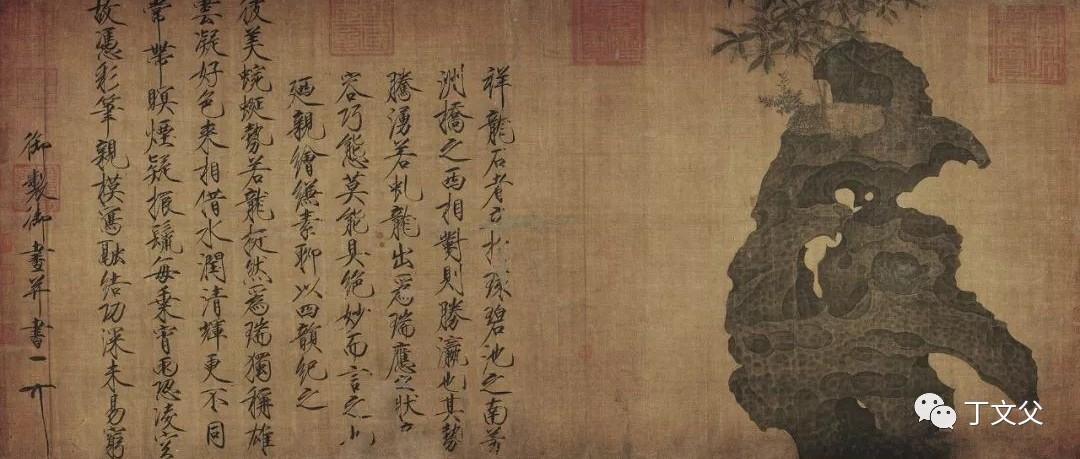 祥龍石者立於環碧池之南芳
洲橋之西相對則勝瀛也其勢
騰湧若虬龍出爲瑞應之狀奇
容巧態莫能具絕妙而言之也
廼親繪縑素聊以四韻紀之
彼美蜿蜒勢若龍挺然爲瑞獨稱雄
雲凝好色來相借水潤清輝更不同
常帶暝煙疑振鬣每乘宵雨恐凌空
故憑彩筆親模寫融結功深未易窮
御製御畫并書
丁文父